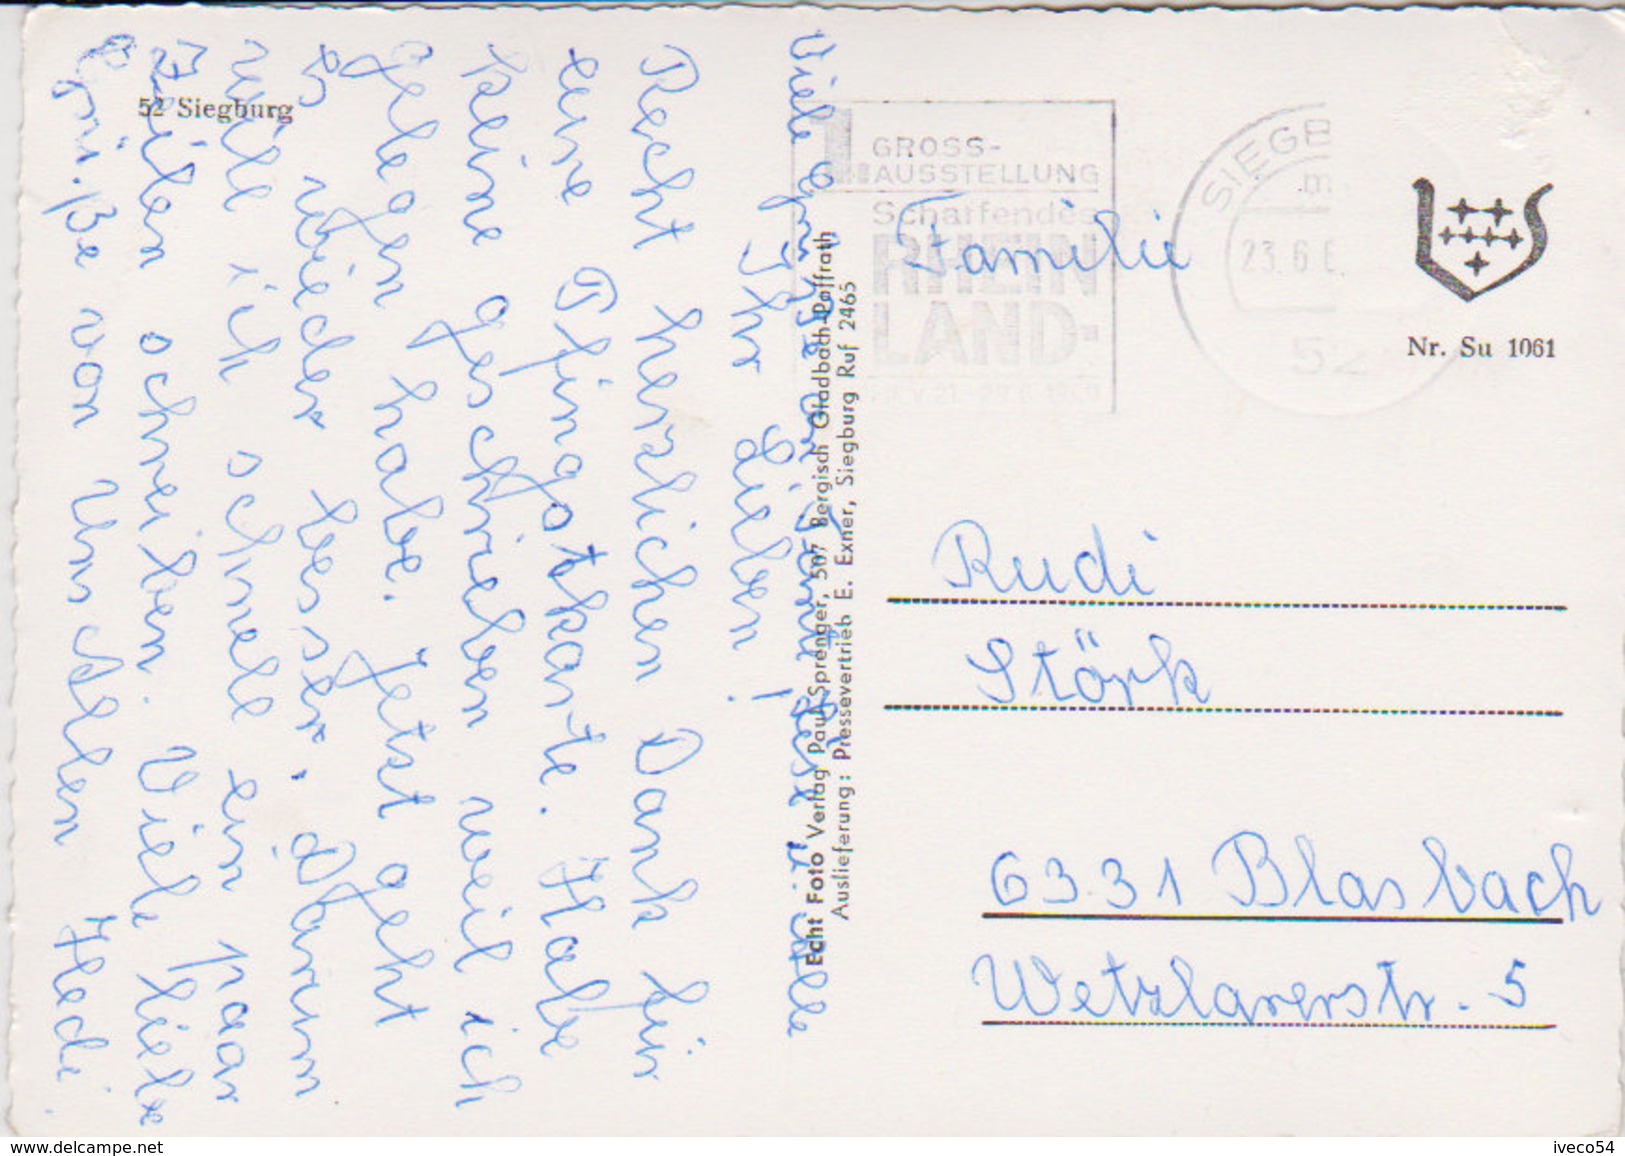 52 Siegburg
Ihr Lieben!
Recht herzlichen Dank für
eine Pfingstkarte. Habe
keine geschrieben weil ich
gelegen habe. Jetst geht
es wieder besser. Darum
will ich schnell ein paar
Zeilen schreiben. Viele liebe
Grüße von Uns Allen Hedi.
Viele Grüsse an
Echt Foto Verlag Paul Sprenger, 507 Bergisch Gladbach-Paffrath
Auslieferung: Pressevertrieb E. Exner, Siegburg Ruf 2465
1. GROSS-
AUSSTELLUNG
Schaffendes
RHEIN
LAND-
SIEGB
m
23.6.6
52
Nr. Su 1061
Familie
Rudi
Störk
6331 Blasbach
Wetzlarerstr. 5
www.delcampe.net
iveco54